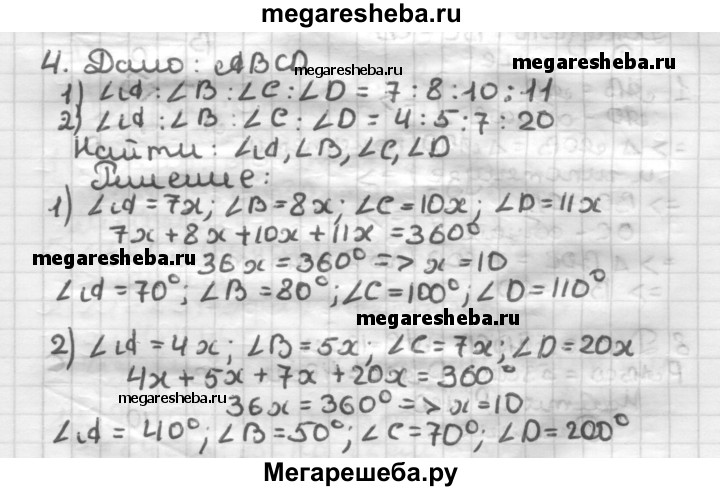 megaresheba.ru
4. Дано: ABCD
megaresheba.ru
megaresheba.ru
1) ∠A : ∠B : ∠C : ∠D = 7 : 8 : 10 : 11
2) ∠A : ∠B : ∠C : ∠D = 4 : 5 : 7 : 20
Найти: ∠A, ∠B, ∠C, ∠D
Решение:
1) ∠A = 7x; ∠B = 8x; ∠C = 10x; ∠D = 11x
7x + 8x + 10x + 11x = 360°
megaresheba.ru
36x = 360° => x = 10
∠A = 70°; ∠B = 80°; ∠C = 100°; ∠D = 110°
megaresheba.ru
2) ∠A = 4x; ∠B = 5x; ∠C = 7x; ∠D = 20x
4x + 5x + 7x + 20x = 360°
megaresheba.ru
36x = 360° => x = 10
∠A = 40°; ∠B = 50°; ∠C = 70°; ∠D = 200°
Мегарешеба.ру